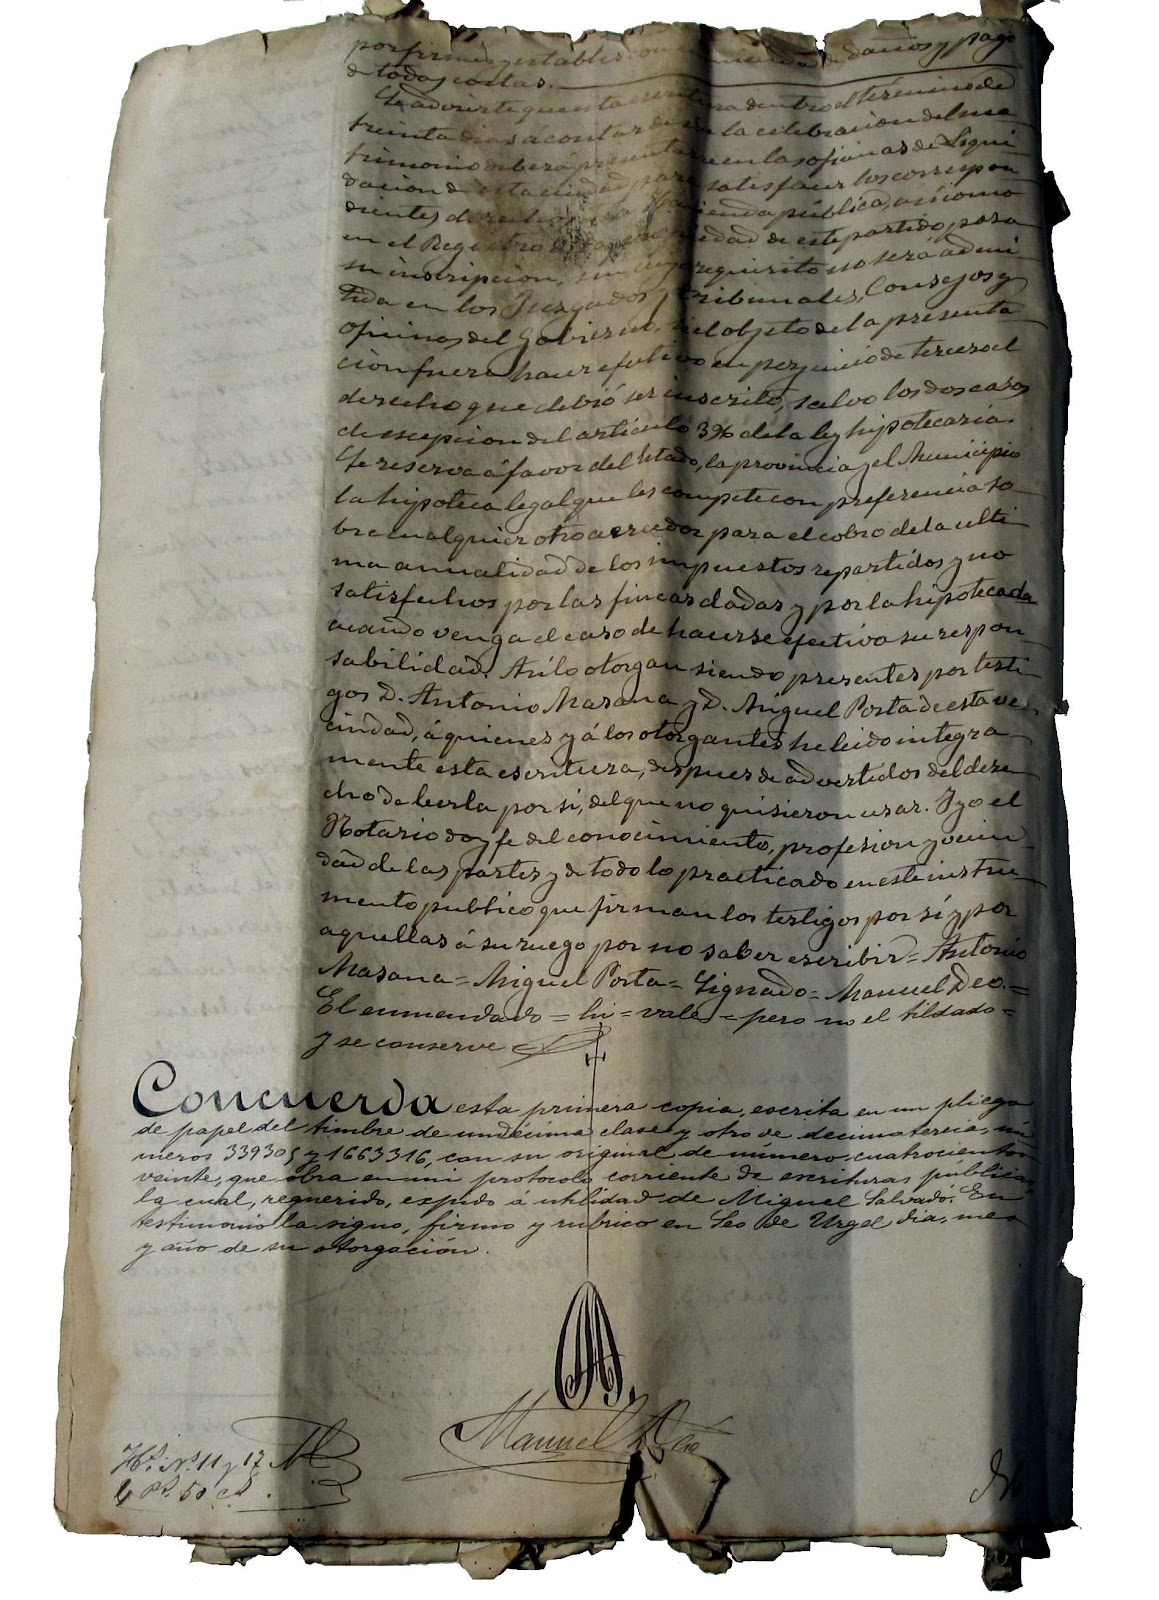 por firme y estable con de daños y pago
de todas costas.
Se advierte que esta escritura dentro el término de
treinta dias á contar desde la celebracion del ma
trimonio deberá presentarse en las oficinas de Liqui
dacion de esta ciudad para satisfacer los correspon
dientes derechos á la Hacienda pública, asi como
en el Registro de la propiedad de este partido para
su inscripcion, sin cuyo requisito no será admi
tida en los Juzgados y Tribunales, Consejos y
oficinas del Gobierno, si el objeto de la presenta
cion fuere hacer efectivo en perjuicio de tercero el
derecho que debió ser inscrito, salvo los dos casos
de escepcion del artículo 396 de la ley hipotecaria.
Se reserva á favor del Estado, la provincia y el Municipio
la hipoteca legal que les compete con preferencia so
bre cualquier otro acreedor para el cobro de la ulti
ma anualidad de los impuestos repartidos y no
satisfechos por las fincas dadas y por la hipotecada
cuando venga el caso de hacerse efectivo su respon
sabilidad. Asi lo otorgan siendo presentes por testi
gos D. Antonio Masana y D. Miguel Porta de esta ve
cindad, á quienes y á los otorgantes he leido integra
mente esta escritura, despues de advertidos del dere
cho de leerla por sí, del que no quisieron usar. Y yo el
Notario doy fe del conocimiento, profesion y vecin
dad de las partes y de todo lo practicado en este instru
mento publico que firman los testigos por sí y por
aquellas á su ruego por no saber escribir = Antonio
Masana = Miguel Porta = Signado = Manuel Deo. =
El enmendado = hi = vale = pero no el tildado =
y se conserve =
Concuerda esta primera copia, escrita en un pliego
de papel del timbre de undécima clase y otro de decimatercia, nú
meros 339305 y 1663316, con su original de número cuatrocientos
veinte, que obra en mi protocolo corriente de escrituras públicas,
la cual, requerido, espido á utilidad de Miguel Salvadó. En
testimonio la signo, firmo y rubrico en Seo de Urgel dia, mes
y año de su otorgación.
Manuel Deo
Hs. Nos. 11 y 17
4 Ps. 50 cs.